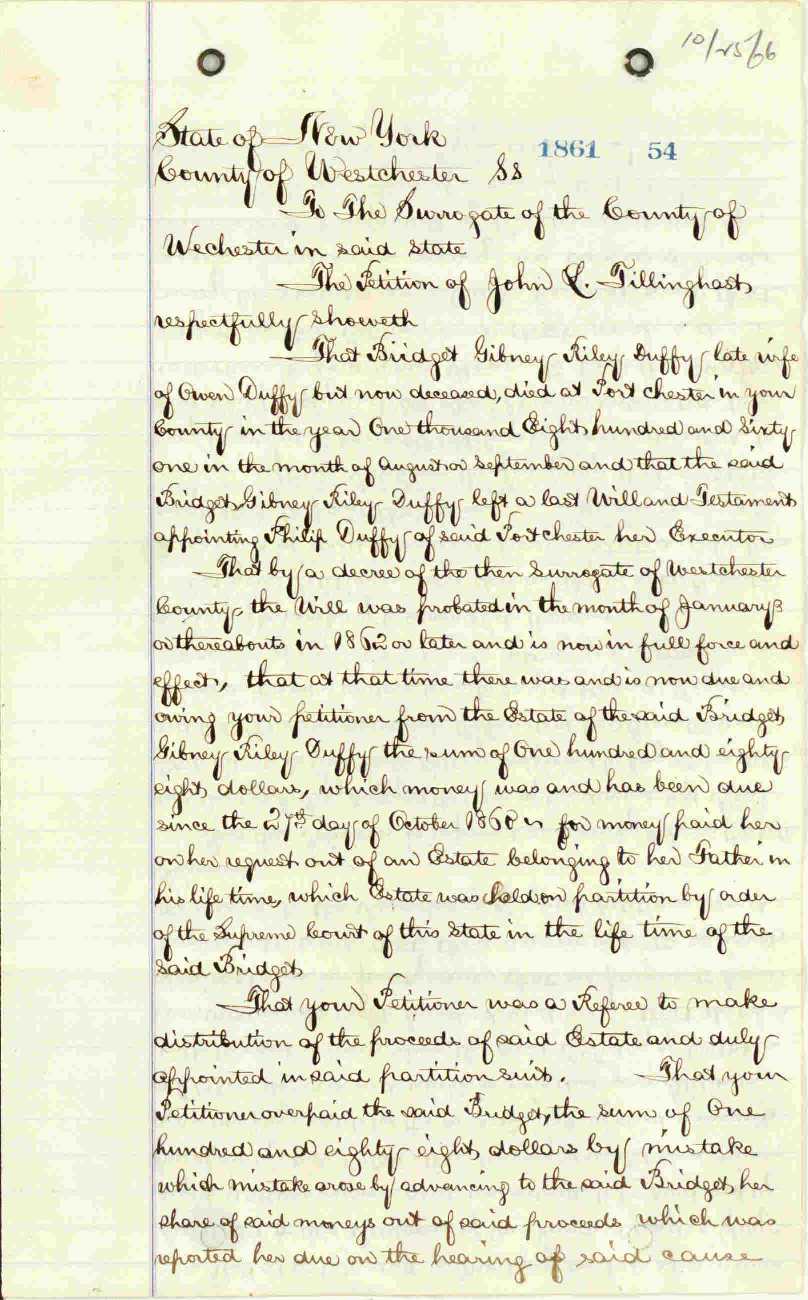 10/25/66
State of New York
1861 54
County of Westchester Ss
To The Surrogate of the County of
Wechester in said State
The Petition of John L. Tillinghast
respectfully showeth
That Bridget Gibney Riley Duffy late wife
of Owen Duffy but now deceased, died at Port chester in your
County in the year One thousand Eight hundred and Sixty
one in the month of August or September and that the said
Bridget Gibney Riley Duffy left a last Will and Testament
appointing Philip Duffy of said Portchester her Executor
That by a decree of the then Surrogate of Westchester
County the Will was probated in the month of January
or thereabouts in 1862 or later and is now in full force and
effect, that at that time there was and is now due and
owing your petitioner from the Estate of the said Bridget
Gibney Riley Duffy the sum of One hundred and eighty
eight dollars, which money was and has been due
since the 27th day of October for money paid her
on her request out of an Estate belonging to her Father in
his life time, which Estate was on partition by order
of the Supreme Court of this State in the life time of the
said Bridget
That your Petitioner was a Referee to make
distribution of the proceeds of said Estate and duly
appointed in said partition suit. That your
Petitioner overpaid the said Bridget, the sum of One
hundred and eighty eight dollars by mistake
which mistake arose by advancing to the said Bridget her
share of said moneys out of said proceeds which was
reported her due on the hearing of said cause